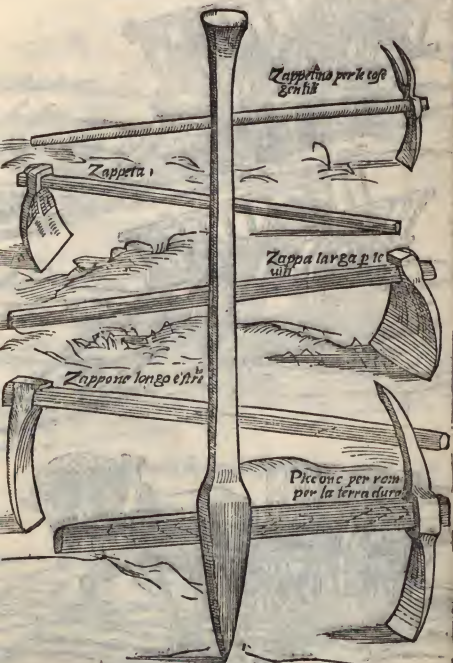 Zappetino per le cose
gentili
Zappeta
Zappa larga p le
uiti
Zappone longo e stre
Piccone per rom
per la terra dura